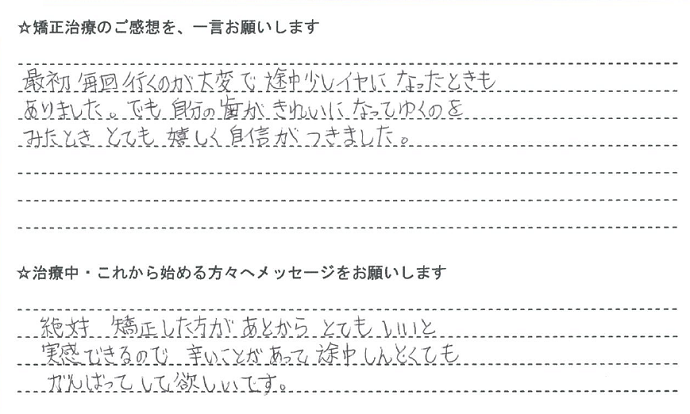 ☆矯正治療のご感想を、一言お願いします
最初 毎回 行くのが 大変で 途中少しイヤに なったときも
ありました。でも 自分の 歯が きれいに なってゆくのを
みたとき とても 嬉しく 自信が つきました。
☆治療中・これから始める方々へメッセージをお願いします
絶対 矯正した方が あとから とても いいと
実感できるので 辛いことが あって 途中 しんどくても
がんばって して欲しいです。